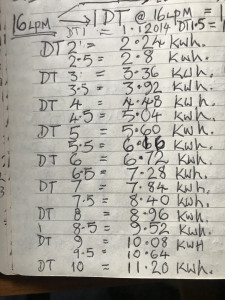 16LPM → 1 DT @ 16LPM =
DT 1' = 1.12014 DT1.5 = 1
DT 2' = 2.24 KWh.
2.5 = 2.8 KWh.
DT 3' = 3.36 KWh.
3.5 = 3.92 KWh.
DT 4 = 4.48 KWh.
4.5 = 5.04 KWh.
DT 5 = 5.60 KWh.
5.5 = 6.16 KWh.
DT 6 = 6.72 KWh.
6.5 = 7.28 KWh.
DT 7 = 7.84 KWh.
7.5 = 8.40 KWh.
DT 8 = 8.96 KWh.
8.5 = 9.52 KWh.
DT 9 = 10.08 KWH
9.5 = 10.64 KWh.
DT 10 = 11.20 KWh.